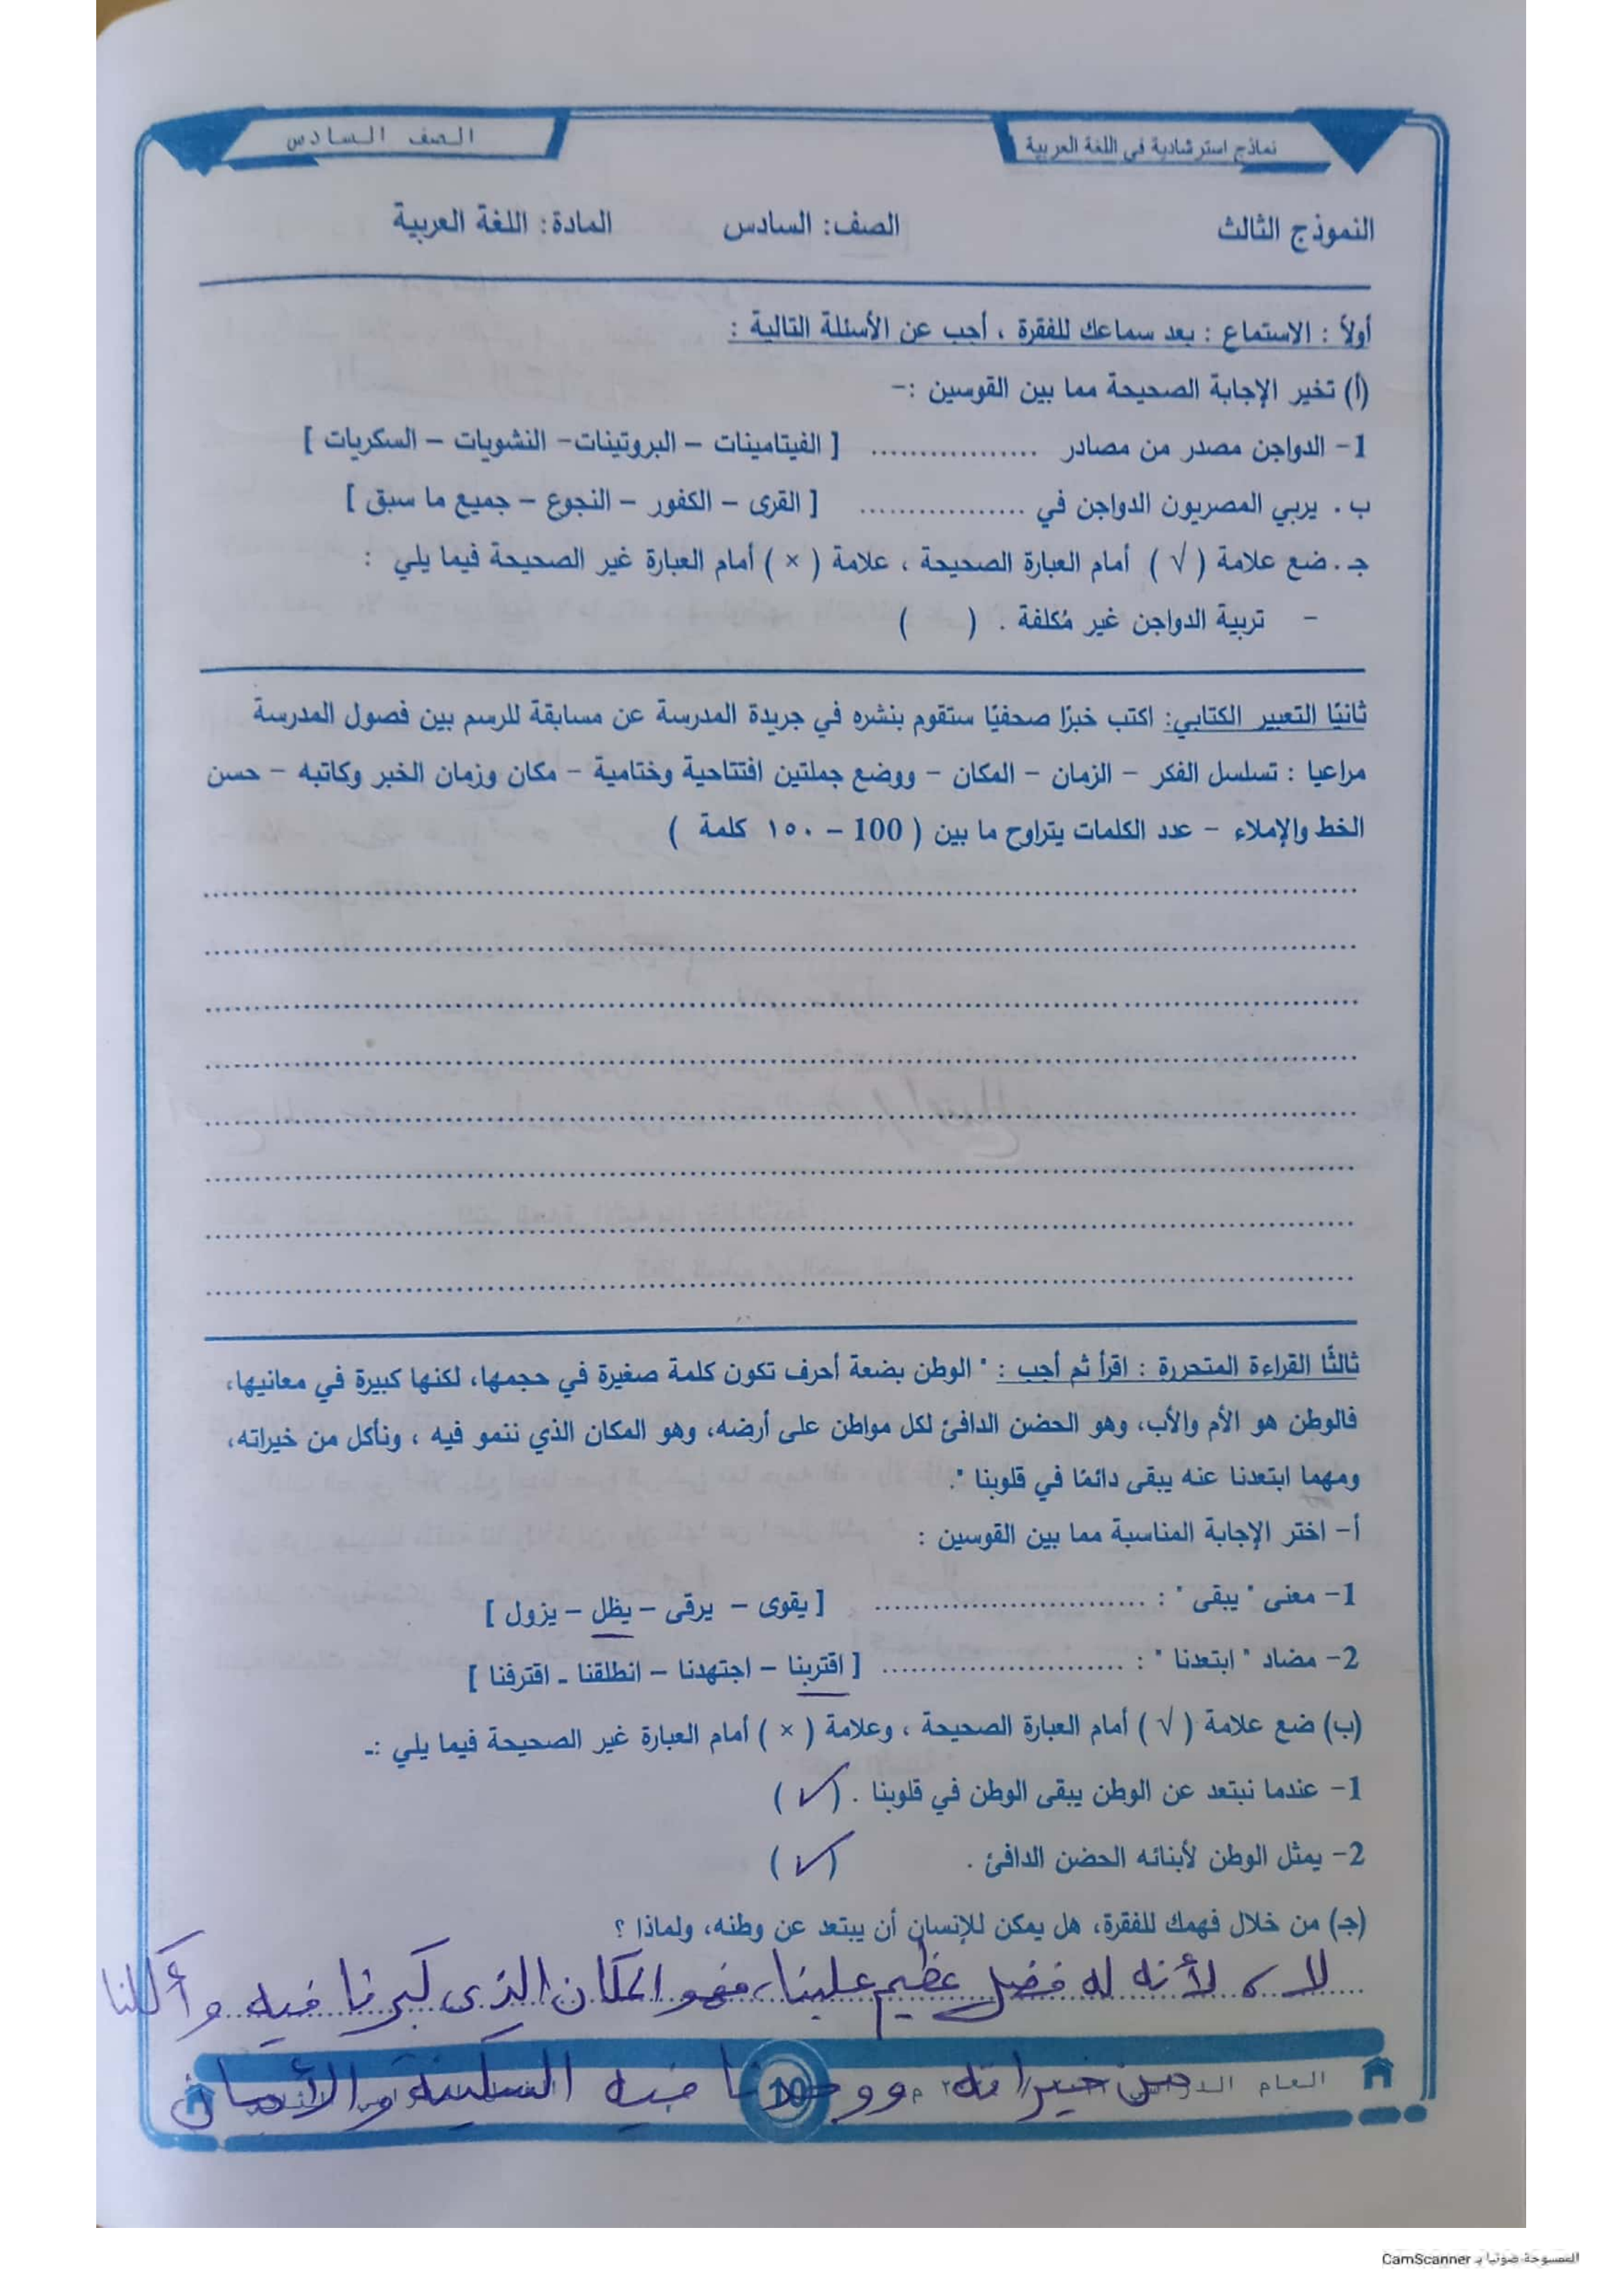 نماذج استرشادية في اللغة العربية
الصف السادس
النموذج الثالث الصف: السادس المادة: اللغة العربية
أولاً : الاستماع : بعد سماعك للفقرة ، أجب عن الأسئلة التالية :
(أ) تخير الإجابة الصحيحة مما بين القوسين :-
1- الدواجن مصدر من مصادر ................. [ الفيتامينات – البروتينات- النشويات – السكريات ]
ب . يربي المصريون الدواجن في ................. [ القرى – الكفور – النجوع – جميع ما سبق ]
جـ . ضع علامة ( √ ) أمام العبارة الصحيحة ، علامة ( × ) أمام العبارة غير الصحيحة فيما يلي :
- تربية الدواجن غير مُكلفة . ( )
ثانيًا التعبير الكتابي: اكتب خبرًا صحفيًا ستقوم بنشره في جريدة المدرسة عن مسابقة للرسم بين فصول المدرسة
مراعيا : تسلسل الفكر – الزمان – المكان – ووضع جملتين افتتاحية وختامية – مكان وزمان الخبر وكاتبه – حسن
الخط والإملاء – عدد الكلمات يتراوح ما بين ( 100 – ١٥٠ كلمة )
ثالثًا القراءة المتحررة : اقرأ ثم أجب : " الوطن بضعة أحرف تكون كلمة صغيرة في حجمها، لكنها كبيرة في معانيها،
فالوطن هو الأم والأب، وهو الحضن الدافئ لكل مواطن على أرضه، وهو المكان الذي ننمو فيه ، ونأكل من خيراته،
ومهما ابتعدنا عنه يبقى دائمًا في قلوبنا ".
أ- اختر الإجابة المناسبة مما بين القوسين :
1- معنى " يبقى " : ............................ [ يقوى – يرقى – يظل – يزول ]
2- مضاد " ابتعدنا " : ......................... [ اقتربنا – اجتهدنا – انطلقنا ـ اقترفنا ]
(ب) ضع علامة ( √ ) أمام العبارة الصحيحة ، وعلامة ( × ) أمام العبارة غير الصحيحة فيما يلي :ـ
1- عندما نبتعد عن الوطن يبقى الوطن في قلوبنا . (✓)
2- يمثل الوطن لأبنائه الحضن الدافئ . (✓)
(جـ) من خلال فهمك للفقرة، هل يمكن للإنسان أن يبتعد عن وطنه، ولماذا ؟
لا ، لأنه له فضل عظيم علينا، فهو المكان الذى كبرنا فيه وأكلنا
من خيراته ووجدنا فيه السكينة والأمان
العام 10
الممسوحة ضوئيا بـ CamScanner